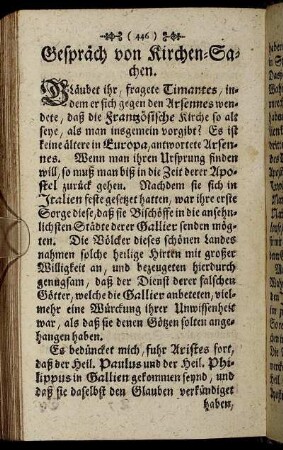 ( 446 )
Gespräch von Kirchen-Sa-
chen.
GLäubet ihr, fragete Timantes, in-
dem er sich gegen den Arsennes wen-
dete, daß die Frantzösische Kirche so alt
seye, als man insgemein vorgibt? Es ist
keine ältere in Europa, antwortete Arsen-
nes. Wenn man ihren Ursprung finden
will, so muß man biß in die Zeit derer Apo-
stel zurück gehen. Nachdem sie sich in
Italien feste gesetzet hatten, war ihre erste
Sorge diese, daß sie Bischöffe in die ansehn-
lichsten Städte derer Gallier senden mög-
ten. Die Völcker dieses schönen Landes
nahmen solche heilige Hirten mit grosser
Willigkeit an, und bezeugeten hierdurch
genugsam, daß der Dienst derer falschen
Götter, welche die Gallier anbeteten, viel-
mehr eine Würckung ihrer Unwissenheit
war, als daß sie denen Götzen solten ange-
hangen haben.
Es bedüncket mich, fuhr Aristes fort,
daß der Heil. Paulus und der Heil. Phi-
lippus in Gallien gekommen seynd, und
daß sie daselbst den Glauben verkündiget
haben,